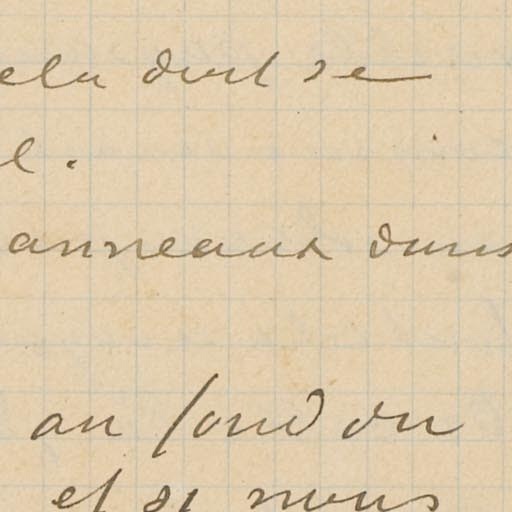 ela doit se
l.
anneaux dans
au fond du
et si nous